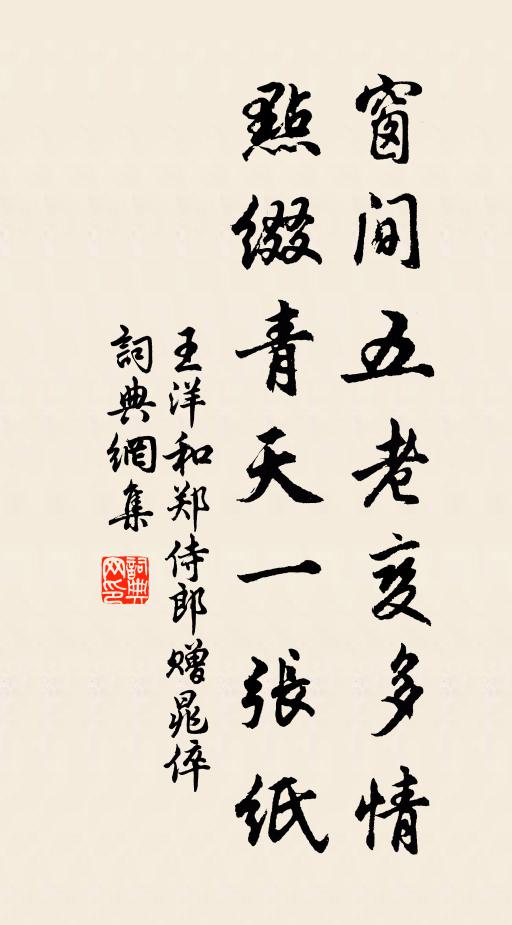 窗间五老变多情
點綴青天一張紙
王洋和郑侍郎赠晁倅
詞典網集
詞典网印